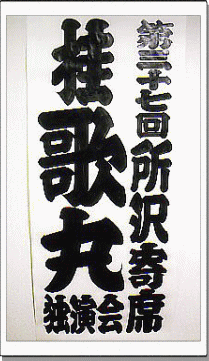 第三十七回所沢寄席
桂歌丸
独演会